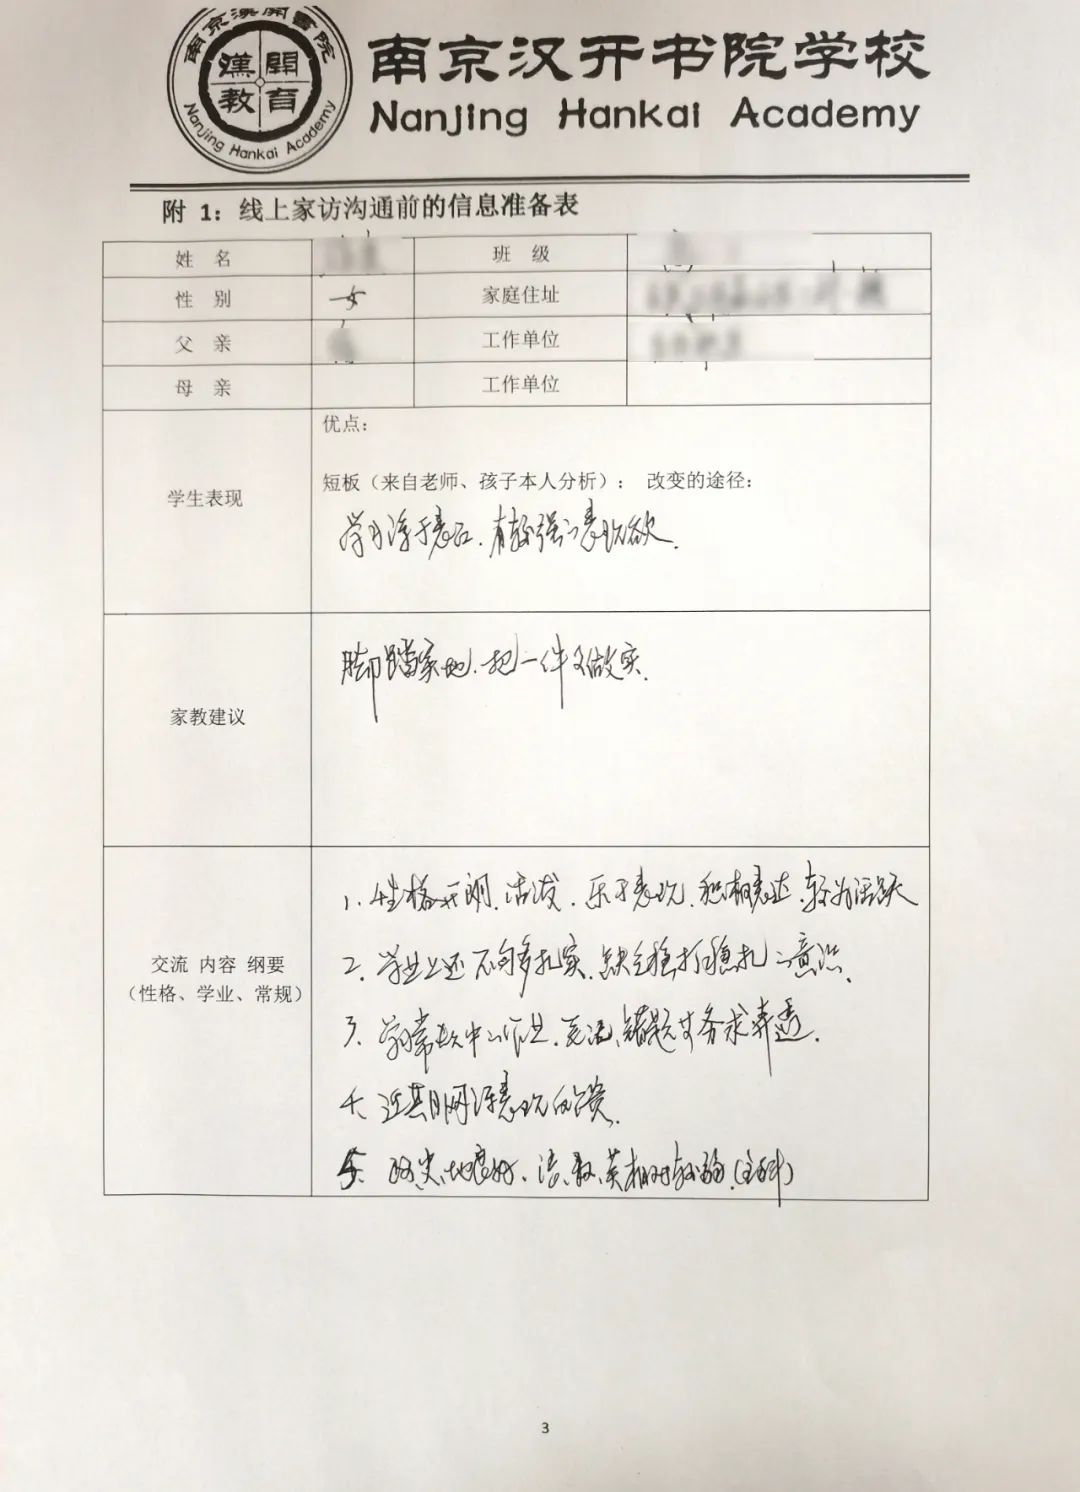 南京漢開書院
漢開
教育
Nanjing Hankai Academy
南京汉开书院学校
Nanjing Hankai Academy
附 1：线上家访沟通前的信息准备表
姓 名
班 级
性 别 女 家庭住址
父 亲 工作单位
母 亲 工作单位
学生表现
优点：
短板（来自老师、孩子本人分析）： 改变的途径：
学习浮于表面，有较强的表现欲．
家教建议
脚踏实地，把一件事做实．
交流 内容 纲要
（性格、学业、常规）
1. 性格开朗，活泼，乐于表现，积极表达，较为活跃
2. 学业上还不够扎实，缺乏稳打稳扎的意识．
3. 学习常规中的作业、笔记、错题等务求弄透．
4. 近期网课表现
5. 政、史、地较好，语、数、英相对较弱．(主科)
3